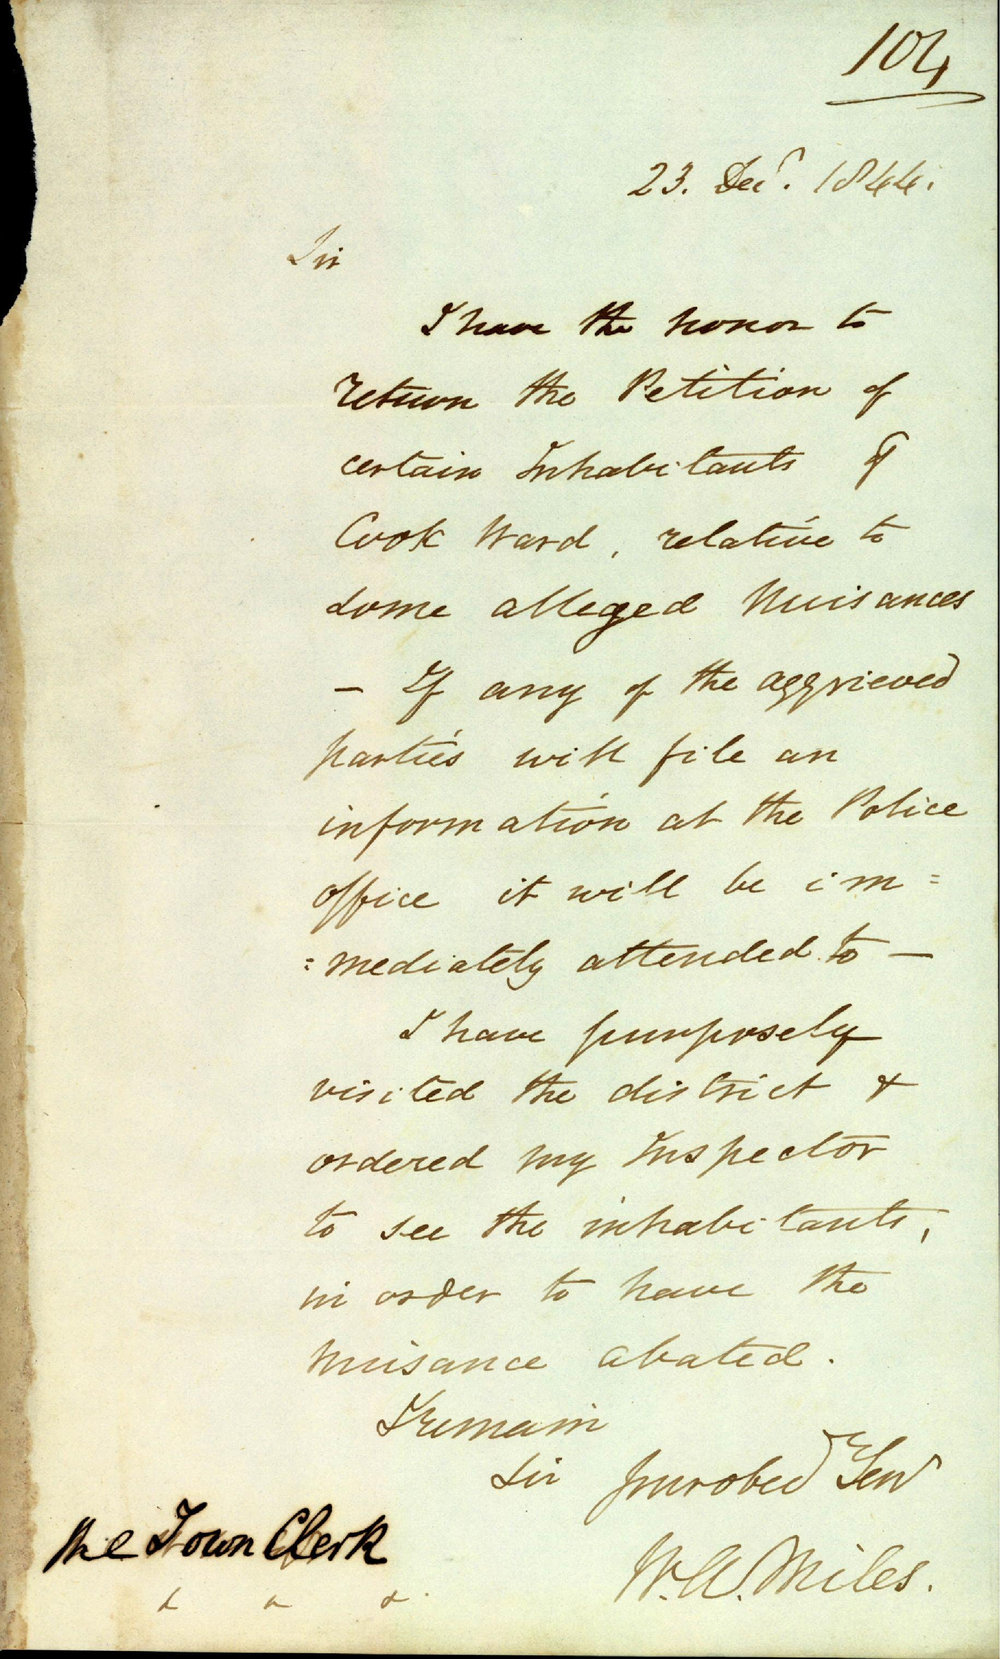 104
23. Decr. 1844.
Sir
I have the honor to
return the Petition of
certain Inhabitants of
Cook Ward, relative to
some alleged Nuisances
— If any of the aggrieved
parties will file an
information at the Police
office it will be im=
=mediately attended to —
I have purposely
visited the district &
ordered my Inspector
to see the inhabitants,
in order to have the
nuisance abated.
I remain
Sir Your obed Serv
W.A. Miles.
The Town Clerk